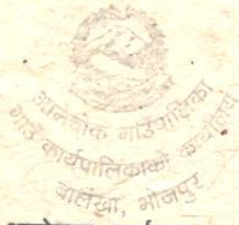 आमचोक गाउँपालिका
गाउँ कार्यपालिकाको कार्यालय
बालंखा, भोजपुर